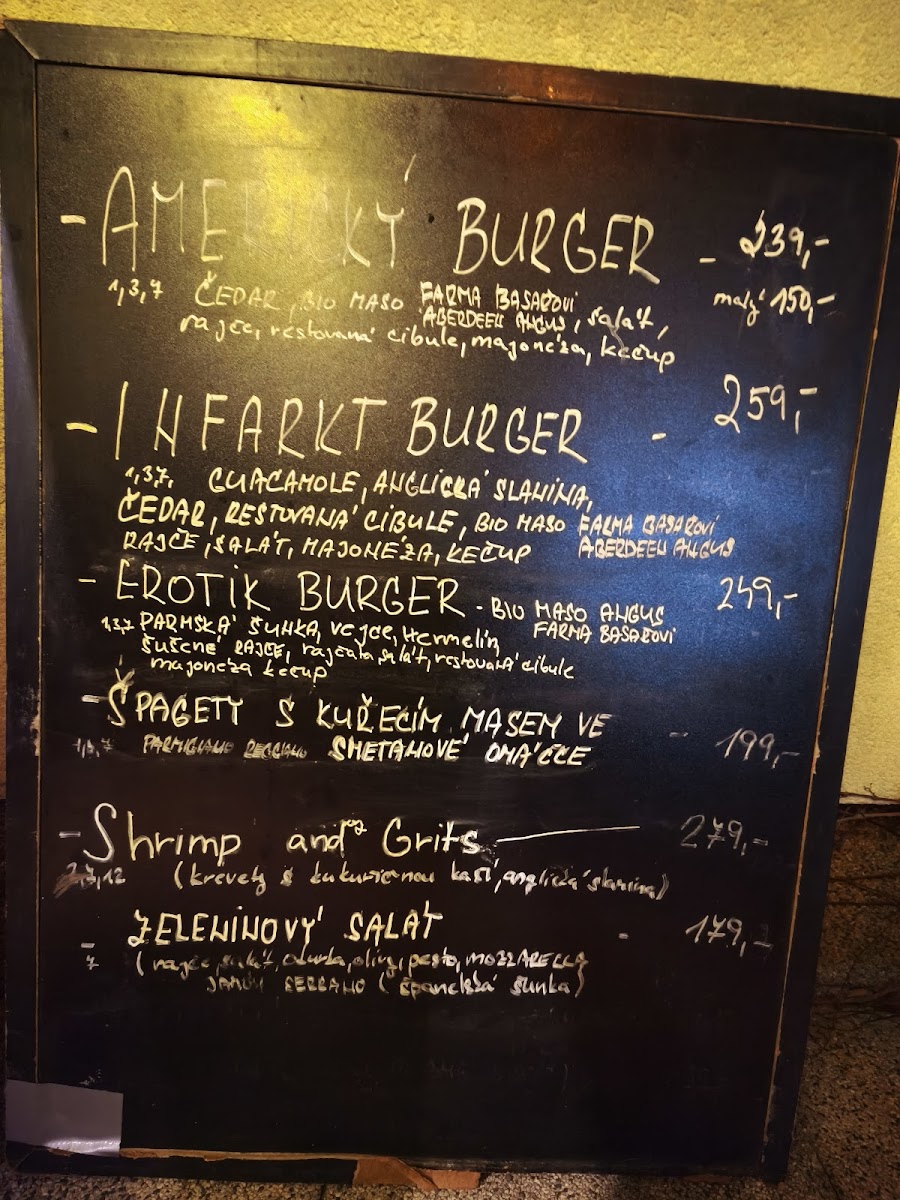 - AMERICKÝ BURGER - 239,-
1,3,7 ČEDAR, BIO MASO FARMA BASAŘOVI malý 150,-
ABERDEEN ANGUS, salát,
rajče, restovaná cibule, majonéza, kečup
- INFARKT BURGER - 259,-
1,3,7. GUACAMOLE, ANGLICKÁ SLANINA,
ČEDAR, RESTOVANÁ CIBULE, BIO MASO FARMA BASAŘOVI
RAJČE, SALÁT, MAJONÉZA, KEČUP ABERDEEN ANGUS
- EROTIK BURGER - BIO MASO ANGUS 249,-
FARMA BASAŘOVI
1,3,7 PARMSKÁ ŠUNKA, vejce, Hermelín,
SUŠENÉ RAJČE, rajčata, salát, restovaná cibule
majonéza kečup
- ŠPAGETY S KUŘECÍM MASEM VE - 199,-
PARMIGIANO REGGIANO SMETANOVÉ OMÁČCE
- Shrimp and Grits 279,-
(krevety s kukuřičnou kaší, anglická slanina)
- ZELENINOVÝ SALÁT - 179,-
7 (rajče, salát, okurka, olivy, pesto, MOZZARELLA
JAMÓN SERRANO (španělská šunka)